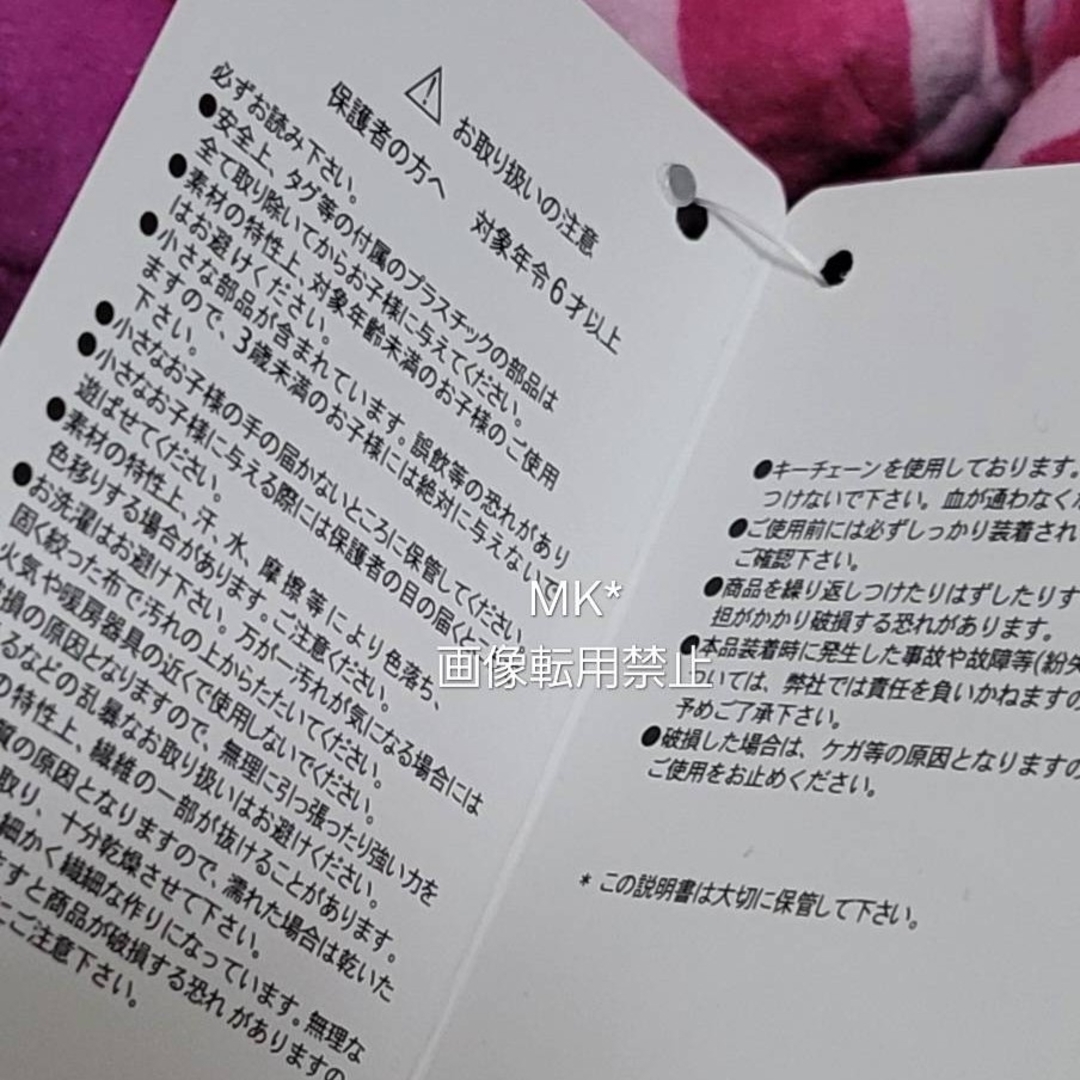 お取り扱いの注意
保護者の方へ 対象年令6才以上
必ずお読み下さい。
●安全上、タグ等の付属のプラスチックの部品は
全て取り除いてからお子様に与えてください。
●素材の特性上、対象年齢未満のお子様のご使用
はお避けください。
●小さな部品が含まれています。誤飲等の恐れがあり
ますので、3歳未満のお子様には絶対に与えないで
下さい。
●小さなお子様の手の届かないところに保管してください。
●小さなお子様に与える際には保護者の目の届くところで
遊ばせてください。
●素材の特性上、汗、水、摩擦等により色落ち、
色移りする場合があります。ご注意ください。
●お洗濯はお避け下さい。万が一汚れが気になる場合には
固く絞った布で汚れの上からたたいてください。
火気や暖房器具の近くで使用しないでください。
損の原因となりますので、無理に引っ張ったり強い力を
るなどの乱暴なお取り扱いはお避けください。
の特性上、繊維の一部が抜けることがあります。
質の原因となりますので、濡れた場合は乾いた
取り、十分乾燥させて下さい。
細かく繊細な作りになっています。無理な
すと商品が破損する恐れがありますの
にご注意下さい。
●キーチェーンを使用しております。
つけないで下さい。血が通わなくな
●ご使用前には必ずしっかり装着され
ご確認下さい。
●商品を繰り返しつけたりはずしたりす
担がかかり破損する恐れがあります。
●本品装着時に発生した事故や故障等(紛失
ついては、弊社では責任を負いかねますの
予めご了承下さい。
●破損した場合は、ケガ等の原因となりますの
ご使用をお止めください。
* この説明書は大切に保管して下さい。
MK*
画像転用禁止